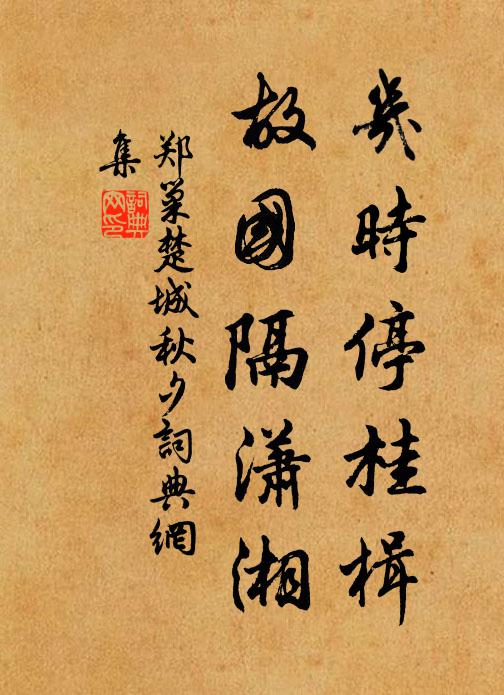 幾時停桂楫
故國隔瀟湘
郑巢楚城秋夕詞典網
集
詞典网印